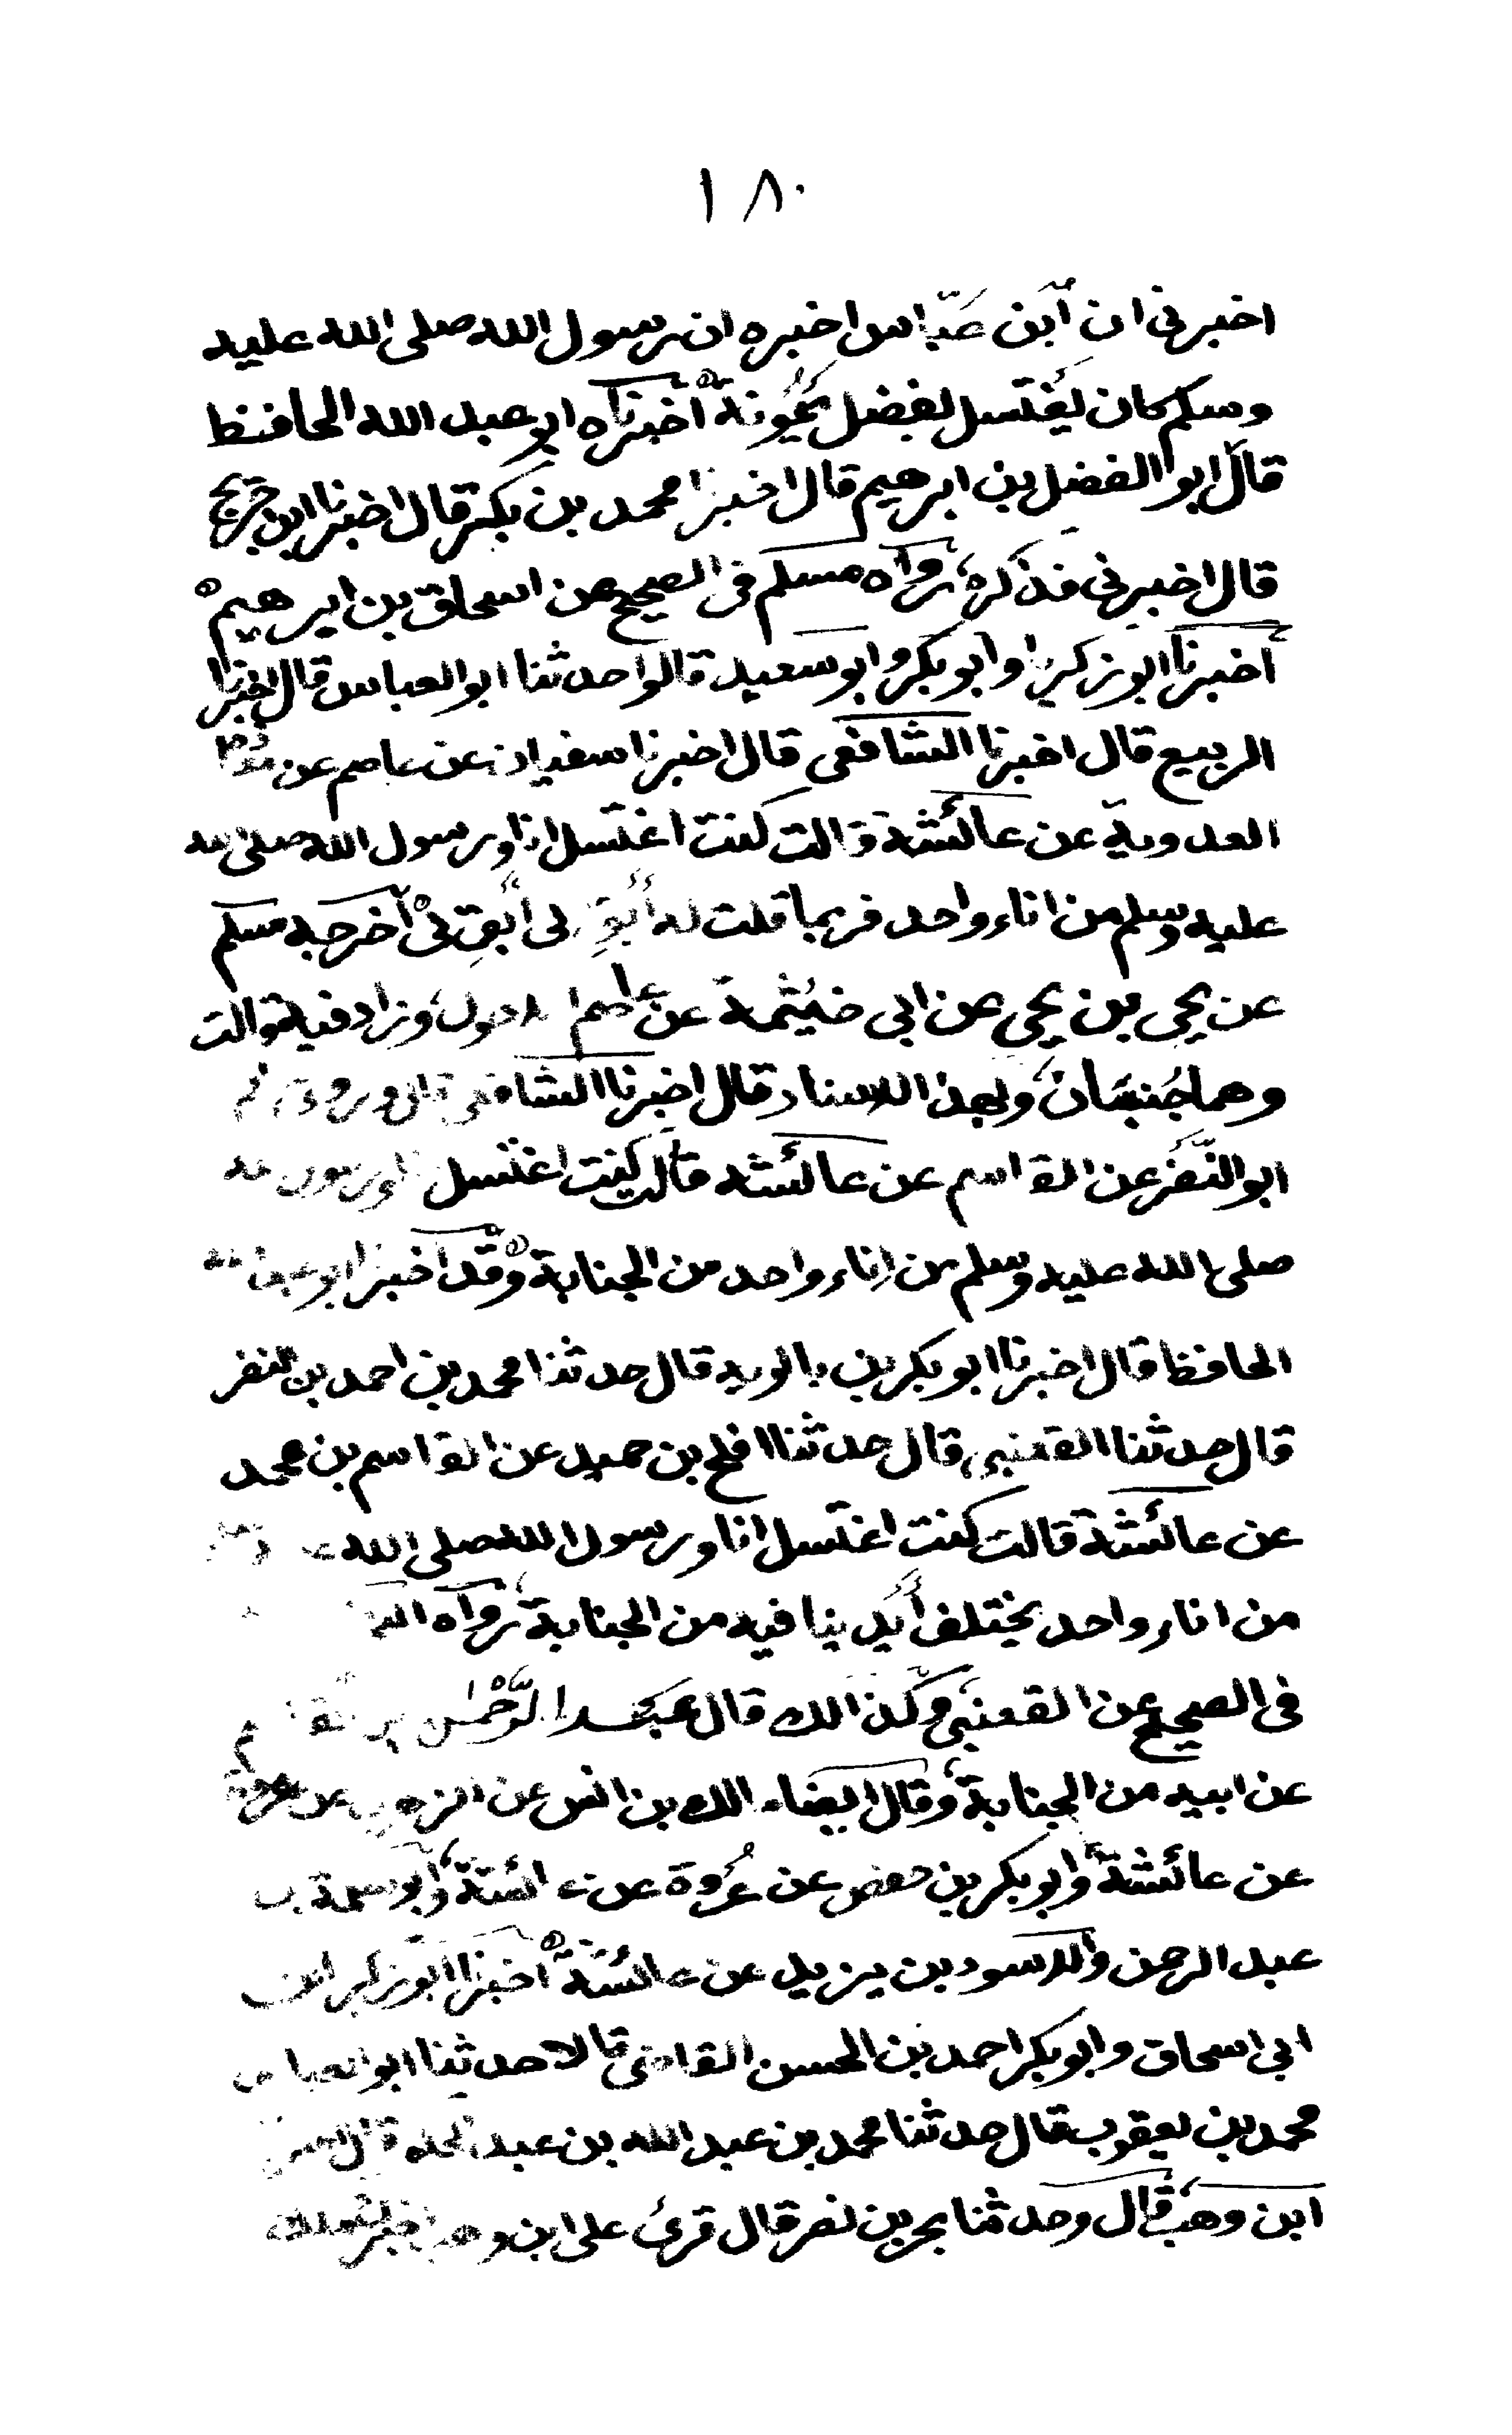 ١٨٠
اخبرني ان ابن عبّاس اخبره ان رسول الله صلى الله عليه
وسلم كان يغتسل بفضل ميمُونة أخبرناه ابو عبد الله الحافظ
قال ابو الفضل بن ابرهيم قال اخبرنا محمد بن بكر قال اخبرنا ابن جريج
قال اخبرني فذكره رواه مسلم في الصحيح عن اسحاق بن ابرهيم
أخبرنا ابو زكريا وابو بكر وابو سعيد قالوا حدثنا ابو العباس قال اخبرنا
الربيع قال اخبرنا الشافعي قال اخبرنا سفيان عن عاصم عن
العدوية عن عائشة قالت كنت اغتسل انا ورسول الله صلى الله
عليه وسلم من اناء واحد فربما قلت له أبقِ لي أبقِ لي أخرجه مسلم
عن يحيى بن يحيى عن ابي خيثمة عن عاصم الاحول وزاد فيه قالت
وهما جُنبَان وبهذا الاسناد قال اخبرنا الشافعي قال وروى
ابو النّضر عن القاسم عن عائشه قالت كنت اغتسل انا ورسول الله
صلى الله عليه وسلم من إناء واحد من الجنابة وقد أخبرنا ابو عبد الله
الحافظ قال اخبرنا ابو بكر بن بالويه قال حدثنا محمد بن احمد بن النضر
قال حدثنا القعنبي قال حدثنا افلح بن حميد عن القاسم بن محمد
عن عائشة قالت كنت اغتسل انا ورسول الله صلى الله
من اناء واحد يختلف أيدينا فيه من الجنابة رواه
في الصحيح عن القعنبي وكذالك قال عبد الرَّحْمٰن بن القاسم
عن ابيه من الجنابة وقال ايضا مالك بن انس عن الزهري عن عروة
عن عائشة وابو بكر بن حفص عن عُروة عن عائشة وأبو سلمة بن
عبد الرحمن والاسود بن يزيد عن عائشة أخبرنا ابو زكريا بن
ابي اسحاق وابو بكر احمد بن الحسن القاضي قالا حدثنا ابو العباس
محمد بن يعقوب قال حدثنا محمد بن عبد الله بن عبد الحكم قال اخبرنا
ابن وهب قال وحدثنا بحر بن نصر قال قرئ على ابن وهب اخبرك